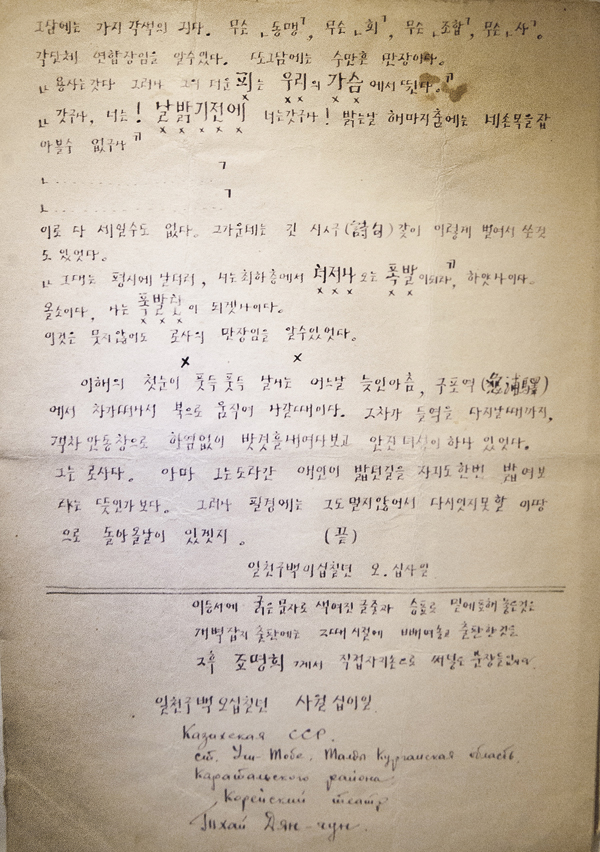 그남에는 가지각색의 긔다. 무슨 「동맹」, 무슨 「회」, 무슨 「조합」, 무슨 「사」,
각단체 연합장임을 알수있다. 또그남에는 수만흔 만장이다.
「용사는갓다 그러나 그의 더운 피는 우리의 가슴에서 뛴다.」
「갓구나, 너는! 날 밝기전에 너는갓구나! 밝는날 해마지춤에는 네손목을잡
아볼수 없구나」
「..............」
「..............」
이로 다 세일수도 없다. 그가운데는 긴 시구(詩句)갓이 이렇게 벌여서 쓴것
도 있었다.
「그대는 평시에 날더러, 너는최하층에서 터저나오는 폭발이되라」, 하얏나이다.
올소이다, 나는 폭발탄이 되겟나이다.
이것은 뭇지않어도 로사의 만장임을 알수있었다.
x x
이해의 첫눈이 풋득풋득 날니는 어느날 늦인아츰, 구포역(龜浦驛)
에서 차가떠나서 북으로 움직여 나갈때이다. 그차가 들역을 다지날때까지,
객차 안동창으로 하염없이 밧겻흘내여다보고 안진 녀성이 하나 있었다.
그는 로사다. 아마 그는도라간 애인의 밟던길을 자긔도한번 밟여보
랴는 뜻인가보다. 그러나 필경에는 그도멀지않어서 다시잇지못할 이땅
으로 돌아올날이 있겟지. (끝)
일천구백이십칠년 오.십사일
이등서에 굵은문자로 색여진 글줄과 승표로 밑에표해 놓은것은
개벽잡지 출판에는 그때 시절에 빠여놓고 출판한것을
그후 조명희께서 직접자긔손으로 써넣은 문장들입니다.
일천구백오십칠년 사월 십이일.
Казахская ССР.
ст. Уш-Тобе, Талды Курганская область,
Каратальского района
Корейский театр,
Тхай Дян-чун.